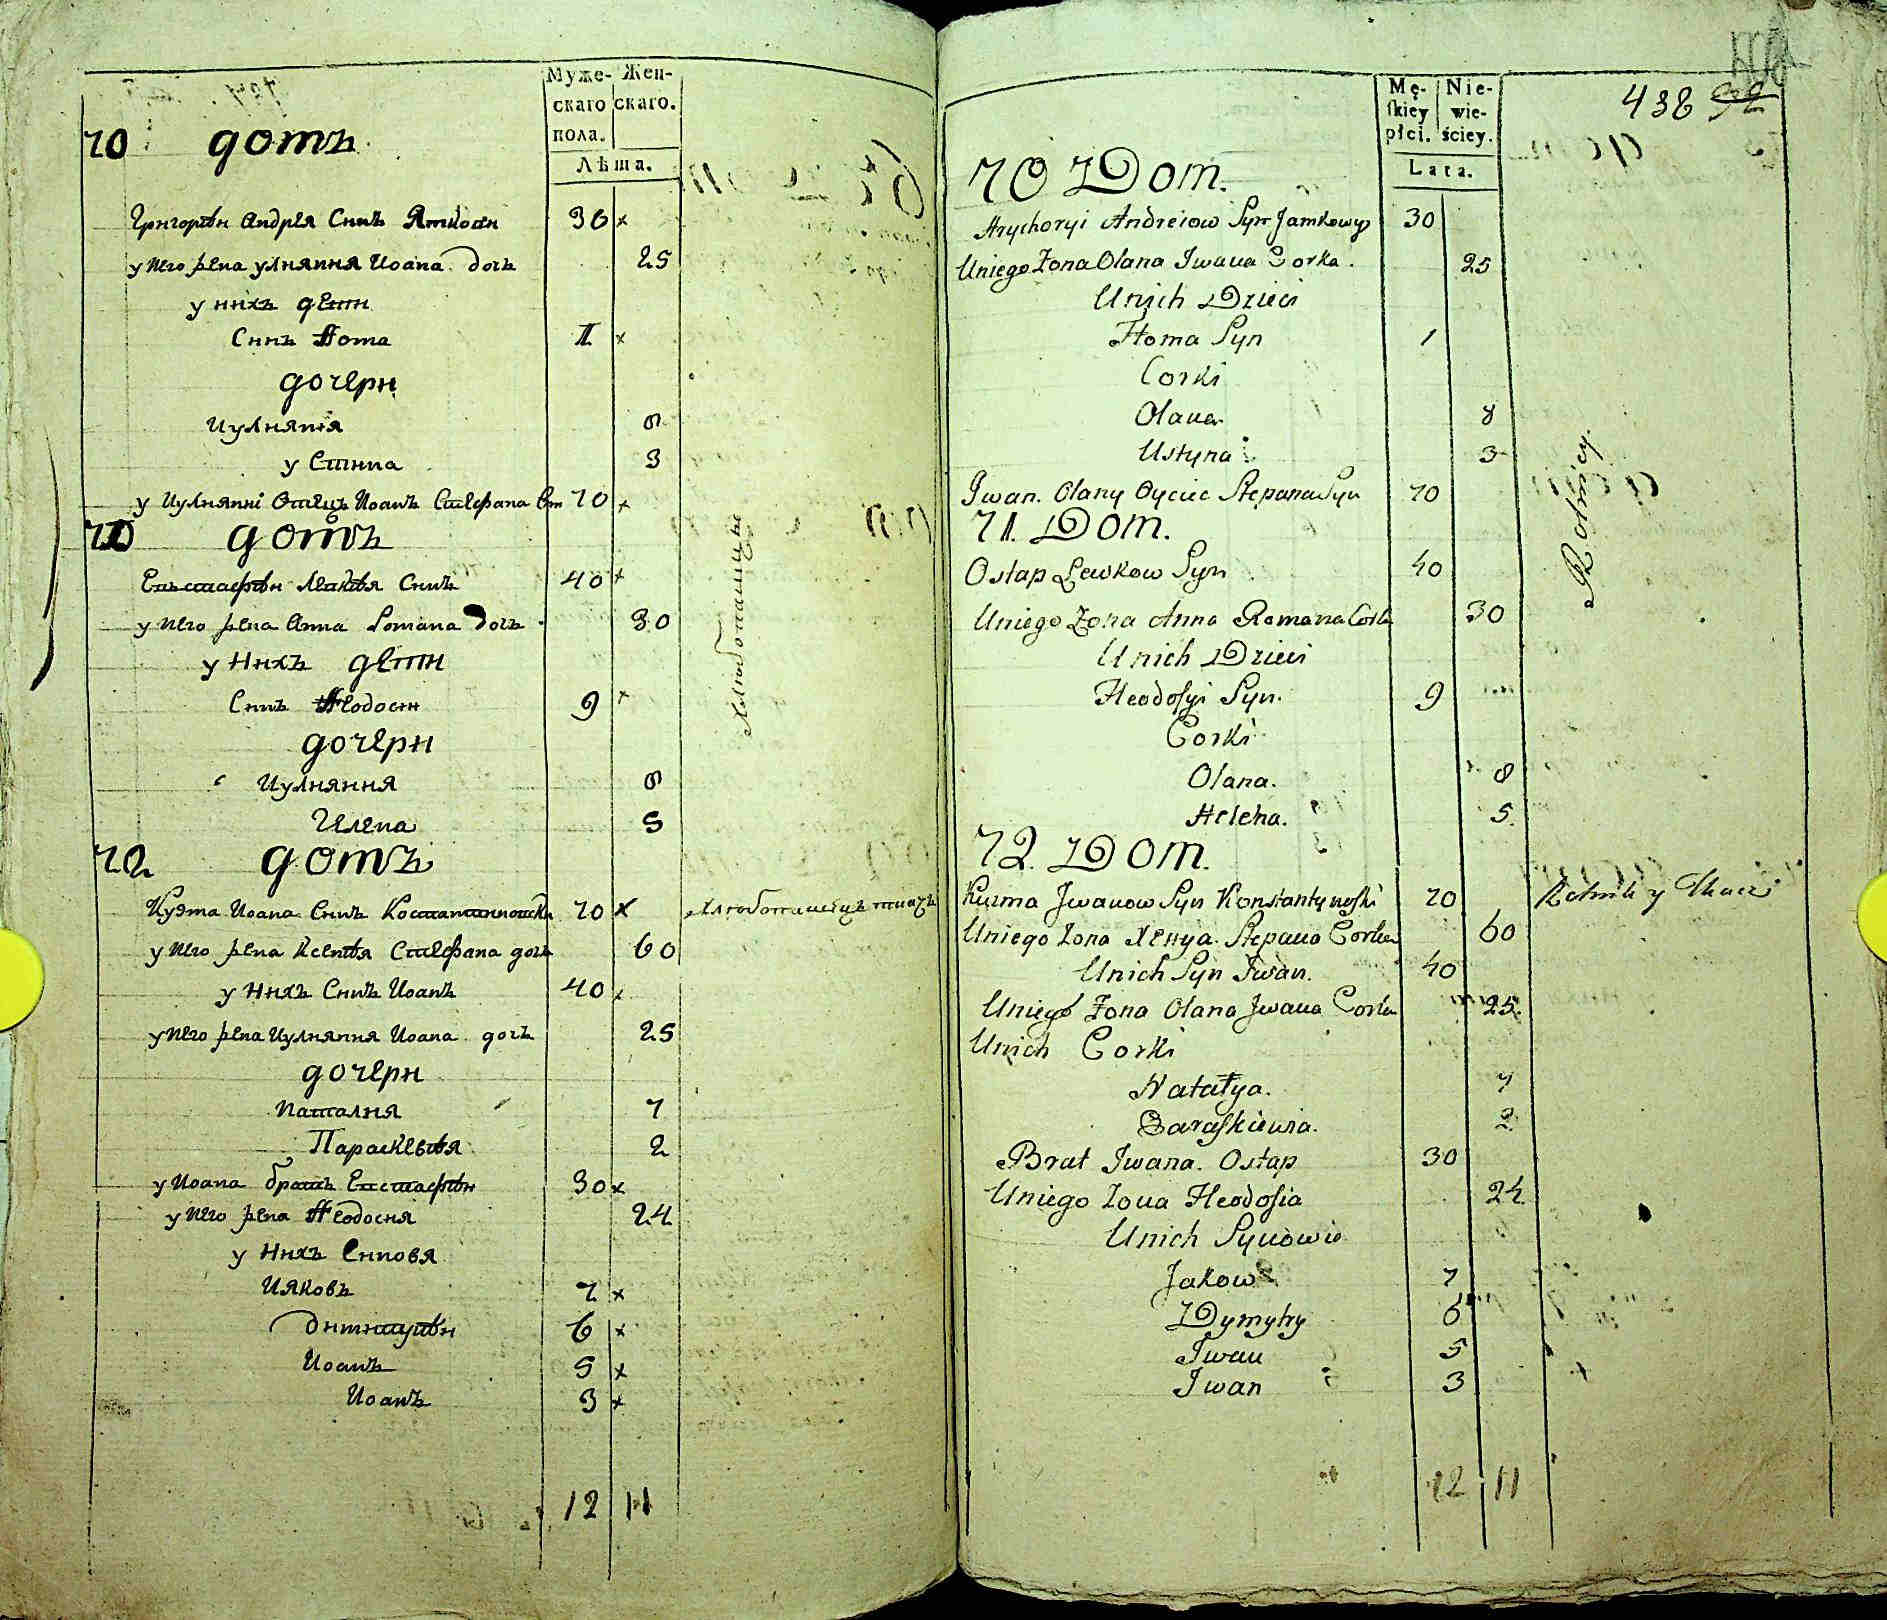 Муже- Жен-
скаго скаго.
пола.
Лѣта.
70 домъ
Григорѣй Андрея Синъ Ямковій 30 x
у Него жена улняння Иоана дочь 25
у нихъ дети
Синъ Ѳома 1 x
дочери
Иулнянія 8
у Стина 3
у Иулнянні Отецъ Иоанъ Стефана 70 x
71 домъ
Евъстафѣй Левкѣя Синъ 40 x
у Него жена Анна Романа дочь 30
у Нихъ дети
Синъ Ѳеодосій 9 x
дочери
Иулняння 8
Гелена 5
72 домъ
Кузма Иоана Синъ 70 x
у Него жена Ксенѣя Стефана дочь 60
у Нихъ Синъ Иоанъ 40 x
у Него жена Иулняння Иоана дочь 25
дочери
Наталия 7
Параскевѣя 2
у Иоана братъ Евстафѣй 30 x
у Него жена Ѳеодосия 24
у Нихъ Синовя
Ияковъ 7 x
6 x
Иоанъ 5 x
Иоанъ 3 x
12 11
Хлѣбопашцы
438
Mę- Nie-
skiey wie-
płci. ściey.
Lata.
70 Dom.
Hrychoryi Andreiow Syn Jamkowy 30
Uniego Zona Olana Iwana Corka. 25
Unich Dzieci
Homa Syn 1
Corki
Olana 8
Ustyna 3
Iwan. Olany Oyciec Stepana Syn 70
71. Dom.
Ostap Lewkow Syn 40
Uniego Zona Anna Romana Corka 30
Unich Dzieci
Heodosyi Syn. 9
Corki
Olana. 8
Helena. 5
72. Dom.
Kuzma Iwanow Syn Konstantynoski 70 Rolnik y Tkacz
Uniego Zona Xenya Stepana Corka 60
Unich Syn Iwan. 40
Uniego Zona Olana Iwana Corka 25.
Unich Corki
Natalya. 7
Paraskiewia. 2
Brat Iwana. Ostap 30
Uniego Zona Heodosia 24
Unich Synowie
Jakow 7
Dymytry 6
Iwan 5
Iwan 3
12 11
Rolnicy.